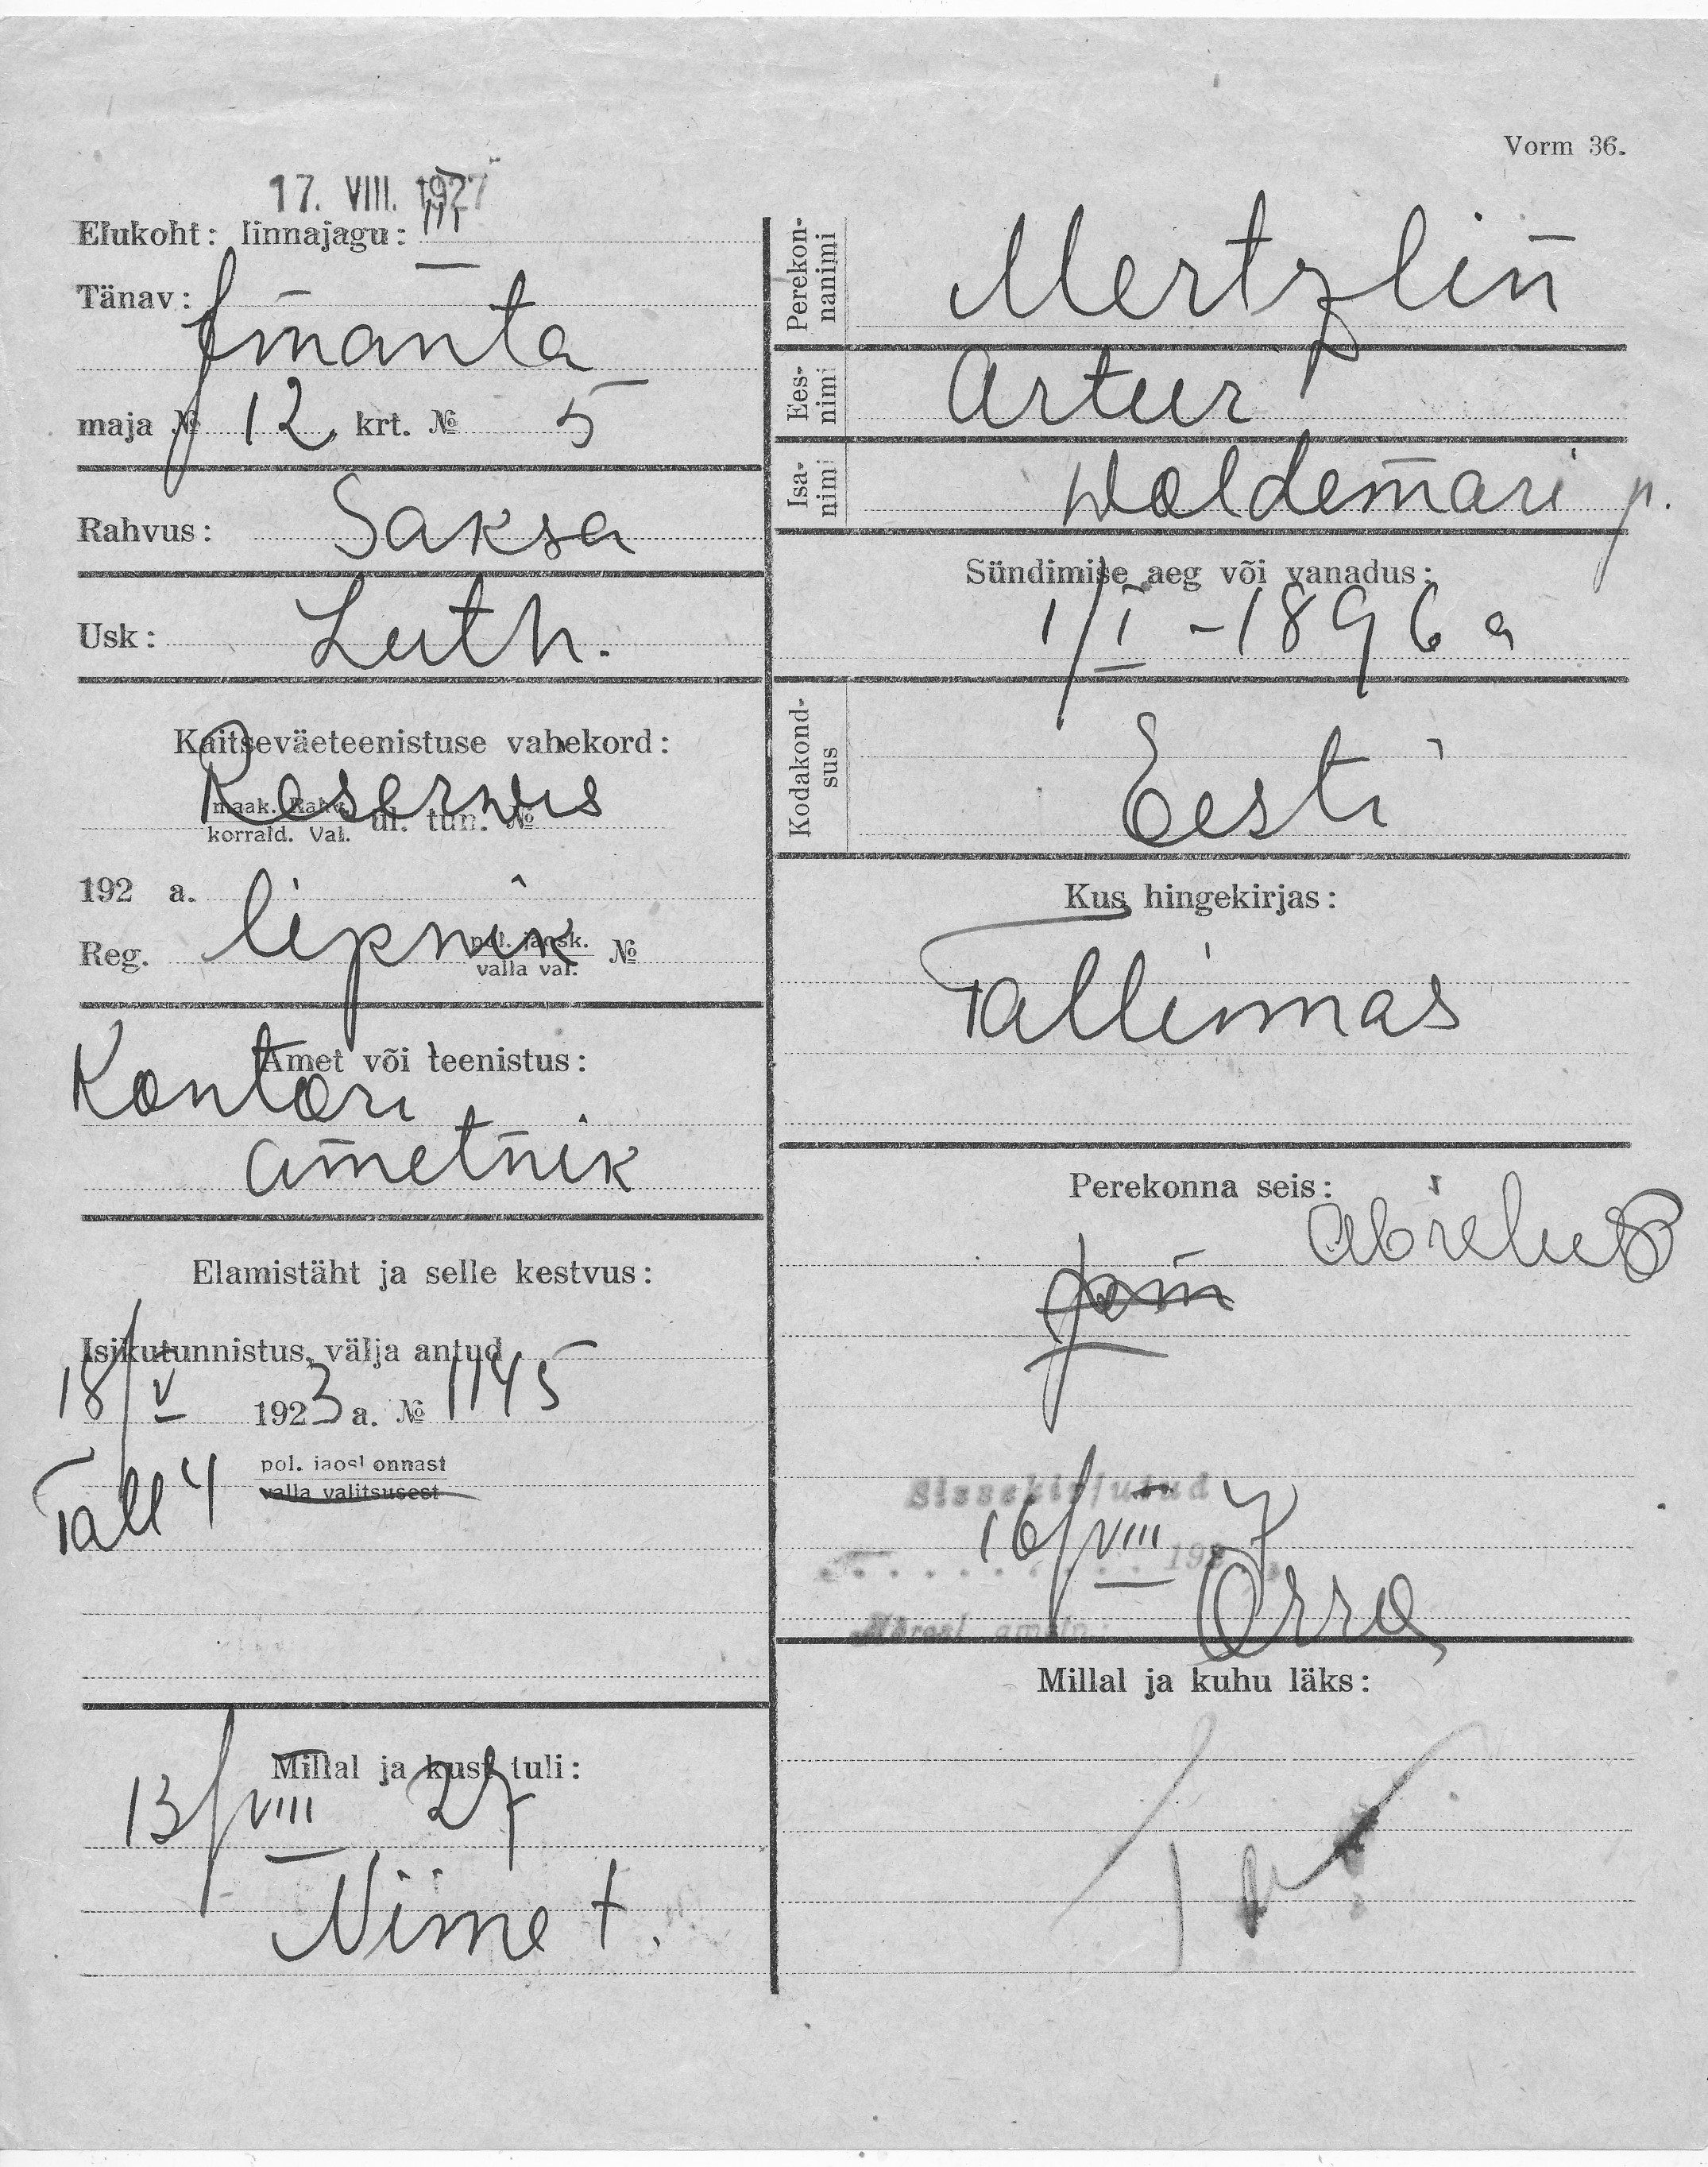 Vorm 36.
17. VIII. 1927
Elukoht: linnajagu: III
Tänav:
Imanta
maja № 12 krt. № 5
Rahvus: Saksa
Usk: Luth.
Kaitseväeteenistuse vahekord:
Reservis
maak. Rahv.
korrald. Val. ül. tun. №
192 a.
Reg. lipnik pol. jaosk. №
valla val.
Amet või teenistus:
Kontori
ametnik
Elamistäht ja selle kestvus:
Isikutunnistus, välja antud
18/V 1923 a. № 1145
Tall 4 pol. jaoskonnast
valla valitsusest
Millal ja kust tuli:
13/VIII 27
Nime t.
Perekonnanimi Mertzlin
Eesnimi Artur
Isanimi Woldemari p.
Sündimise aeg või vanadus:
1/I - 1896 a
Kodakondsus
Eesti
Kus hingekirjas:
Tallinnas
Perekonna seis:
abielus
Sissekirjutud
16/VIII 192 7
Orro
Millal ja kuhu läks: